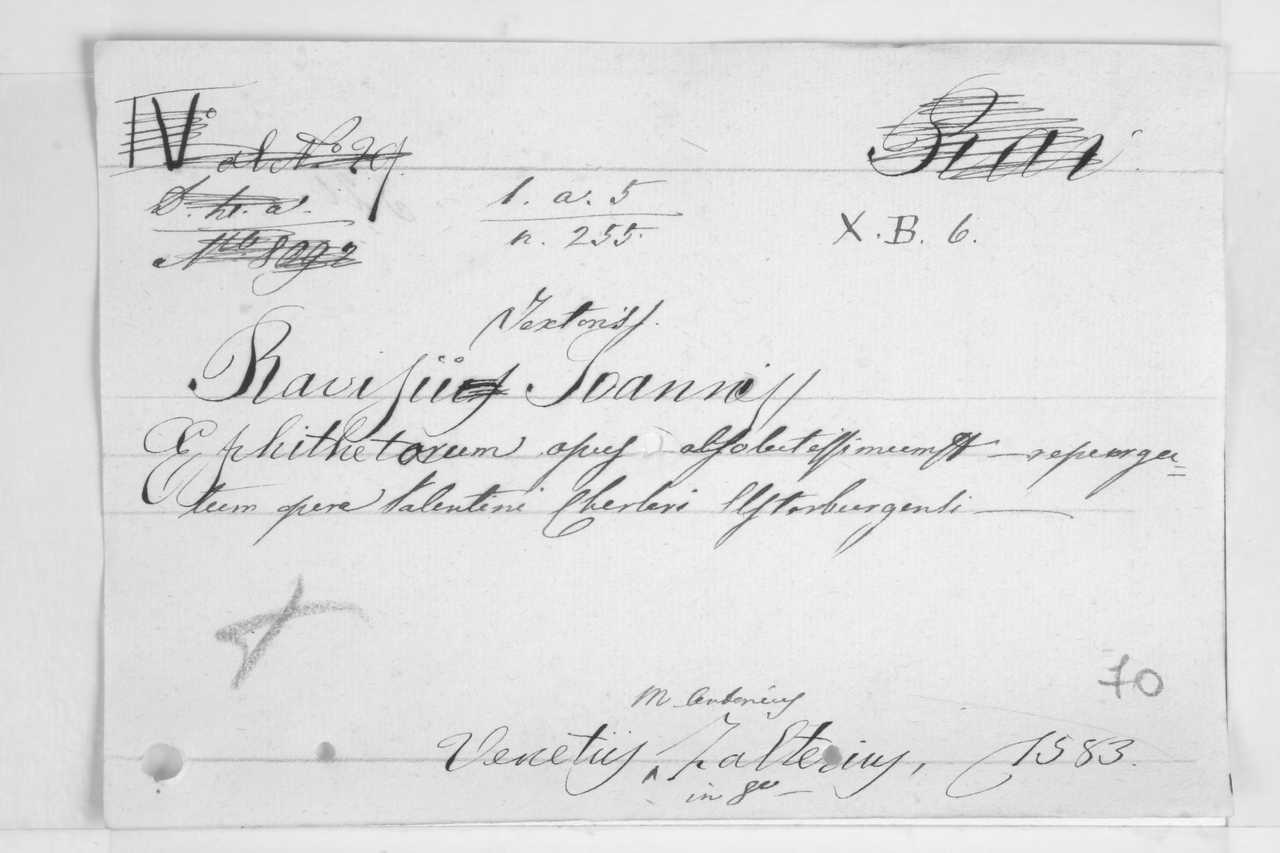 IV° al N° 29.
D. h. a.
N° 8092
1. a. 5
n. 255.
X. B. 6.
Textoris.
Ravisii Joannis
Ephithetorum opus absolutissimum — repurga=
tum opera Valentini Cherleri Elstorburgensi —
70
M. Antonius
Venetiis, Zalterius, 1583.
in 8vo —